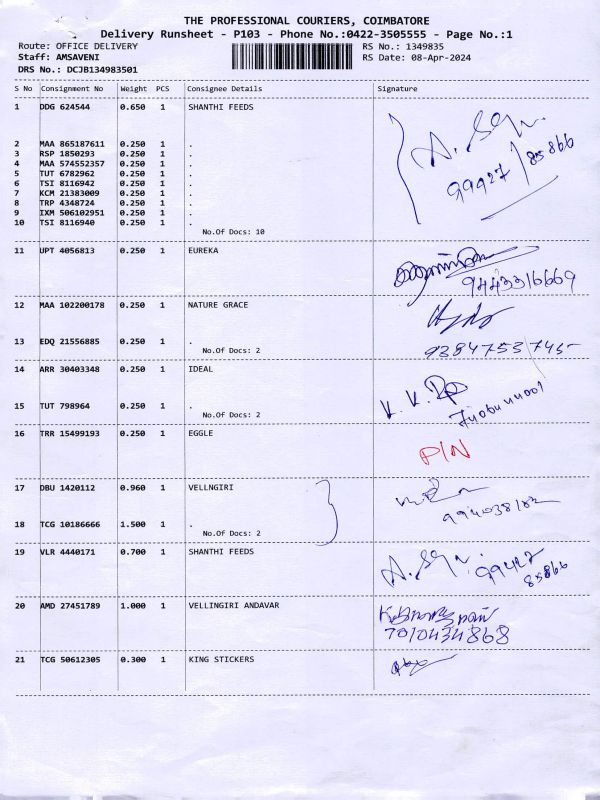 THE PROFESSIONAL COURIERS, COIMBATORE
Delivery Runsheet - P103 - Phone No.:0422-3505555 - Page No.:1
Route: OFFICE DELIVERY RS No.: 1349835
Staff: AMSAVENI RS Date: 08-Apr-2024
DRS No.: DCJB134983501
S No Consignment No Weight PCS Consignee Details Signature
1 DDG 624544 0.650 1 SHANTHI FEEDS
2 MAA 865187611 0.250 1 .
3 RSP 1850293 0.250 1 .
4 MAA 574552357 0.250 1 .
5 TUT 6782962 0.250 1 .
6 TSI 8116942 0.250 1 .
7 KCM 21383009 0.250 1 .
8 TRP 4348724 0.250 1 .
9 IXM 506102951 0.250 1 .
10 TSI 8116940 0.250 1 .
No.Of Docs: 10
99427 85866
11 UPT 4056813 0.250 1 EUREKA
9443316669
12 MAA 102200178 0.250 1 NATURE GRACE
13 EDQ 21556885 0.250 1 .
No.Of Docs: 2
14 ARR 30403348 0.250 1 IDEAL
15 TUT 798964 0.250 1 .
No.Of Docs: 2
16 TRR 15499193 0.250 1 EGGLE
P/N
17 DBU 1420112 0.960 1 VELLNGIRI
18 TCG 10186666 1.500 1 .
No.Of Docs: 2
19 VLR 4440171 0.700 1 SHANTHI FEEDS
99427
85866
20 AMD 27451789 1.000 1 VELLINGIRI ANDAVAR
7010434868
21 TCG 50612305 0.300 1 KING STICKERS